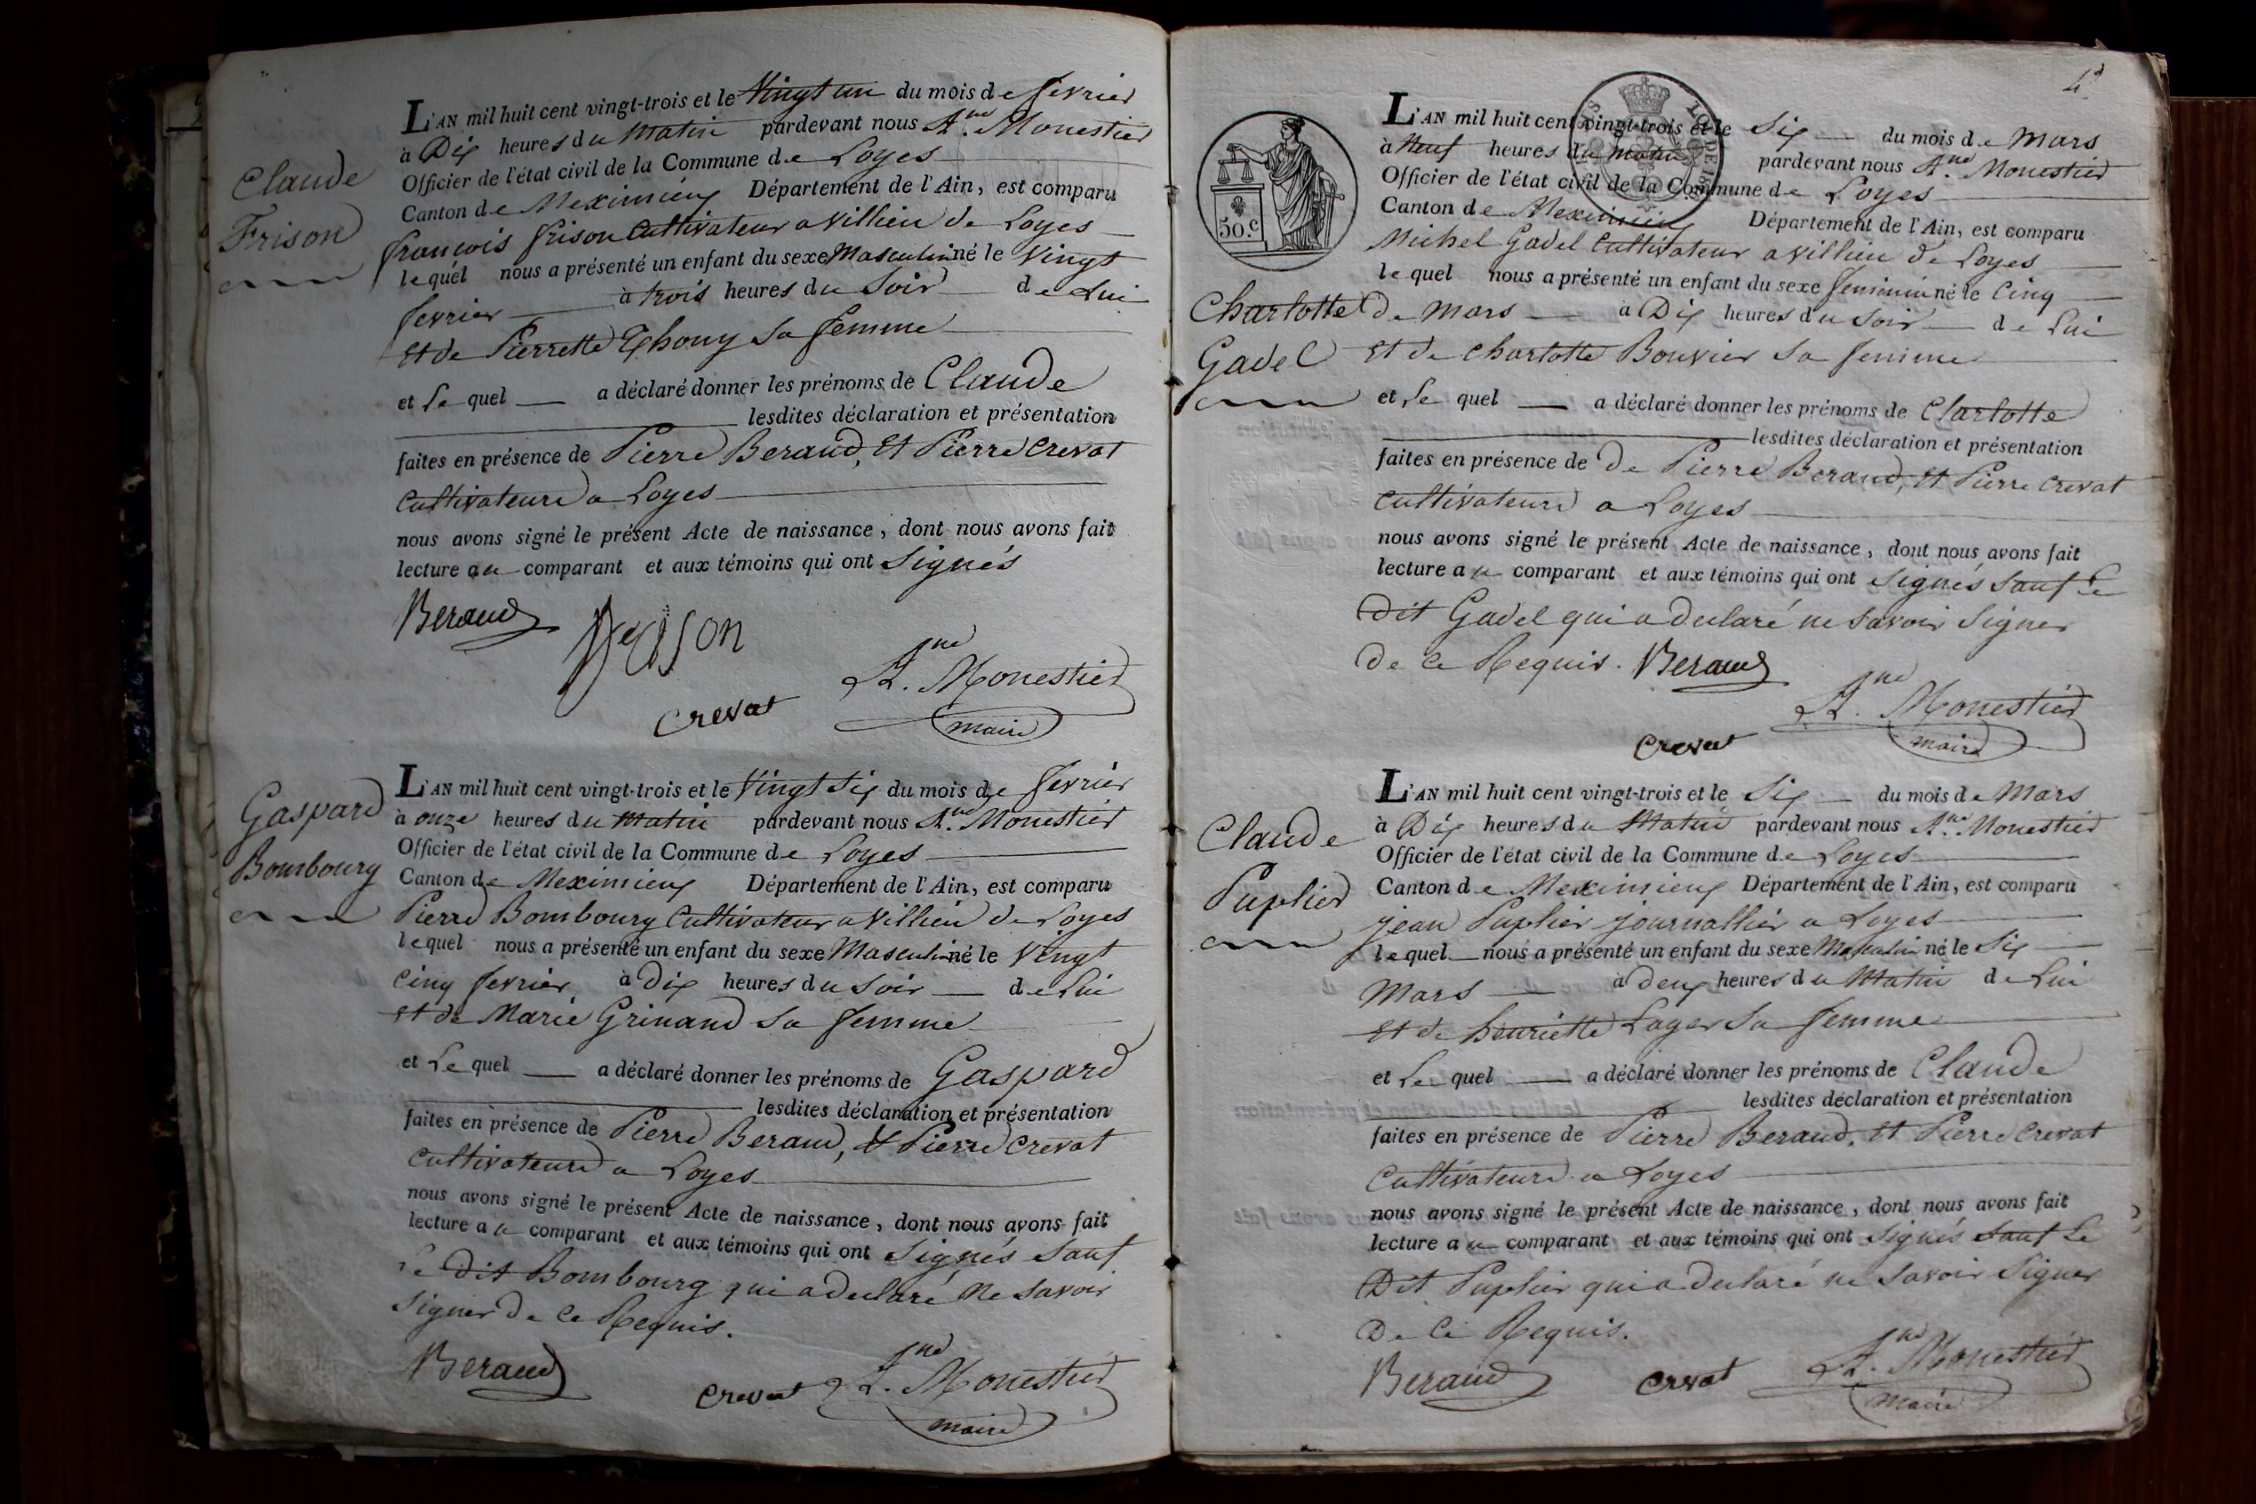 Claude
Frison
L'AN mil huit cent vingt-trois et le Vingt un du mois de fevrier
à Dix heures du Matin pardevant nous A.ne Monestier
Officier de l'état civil de la Commune de Loyes
Canton de Meximieux Département de l'Ain, est comparu
francois frison Cultivateur a villieu de Loyes
lequel nous a présenté un enfant du sexe Masculin né le Vingt
fevrier à trois heures du Soir de Lui
Et de Pierrette Thony sa femme
et Le quel a déclaré donner les prénoms de Claude
lesdites déclaration et présentation
faites en présence de Pierre Beraud, Et Pierre Crevat
Cultivateurs a Loyes
nous avons signé le présent Acte de naissance, dont nous avons fait
lecture au comparant et aux témoins qui ont Signés
Beraud
frison
A.ne Monestier
Crevat
maire
Gaspard
Bombourg
L'AN mil huit cent vingt-trois et le Vingt Six du mois de fevrier
à onze heures du Matin pardevant nous A.ne Monestier
Officier de l'état civil de la Commune de Loyes
Canton de Meximieux Département de l'Ain, est comparu
Pierre Bombourg Cultivateur a Villieu de Loyes
lequel nous a présenté un enfant du sexe Masculin né le Vingt
Cinq fevrier à Dix heures du Soir de Lui
Et de Marie Grinand sa femme
et Le quel a déclaré donner les prénoms de Gaspard
lesdites déclaration et présentation
faites en présence de Pierre Beraud, & Pierre Crevat
Cultivateurs a Loyes
nous avons signé le présent Acte de naissance, dont nous avons fait
lecture au comparant et aux témoins qui ont Signés Sauf
Le dit Bombourg qui a declaré Ne Savoir
Signer de ce Requis.
Beraud
Crevat A.ne Monestier
maire
4
50.c
Charlotte
Gadel
L'AN mil huit cent vingt-trois et le Six du mois de Mars
à Neuf heures du Matin pardevant nous A.ne Monestier
Officier de l'état civil de la Commune de Loyes
Canton de Meximieux Département de l'Ain, est comparu
Michel Gadel Cultivateur a villieu de Loyes
lequel nous a présenté un enfant du sexe feminin né le Cinq
de Mars à Dix heures du Soir de Lui
Et de Charlotte Bouvier sa femme
et Le quel a déclaré donner les prénoms de Charlotte
lesdites déclaration et présentation
faites en présence de de Pierre Beraud, Et Pierre Crevat
Cultivateurs a Loyes
nous avons signé le présent Acte de naissance, dont nous avons fait
lecture au comparant et aux témoins qui ont Signés Sauf Le
Dit Gadel qui a declaré ne savoir Signer
de ce Requis. Beraud
A.ne Monestier
Crevat
maire
Claude
Puplier
L'AN mil huit cent vingt-trois et le Six du mois de Mars
à Dix heures du Matin pardevant nous A.ne Monestier
Officier de l'état civil de la Commune de Loyes
Canton de Meximieux Département de l'Ain, est comparu
jean Puplier journallier a Loyes
lequel nous a présenté un enfant du sexe Masculin né le Six
Mars à deux heures du Matin de Lui
Et de henriette Lager sa femme
et Le quel a déclaré donner les prénoms de Claude
lesdites déclaration et présentation
faites en présence de Pierre Beraud, Et Pierre Crevat
Cultivateurs a Loyes
nous avons signé le présent Acte de naissance, dont nous avons fait
lecture au comparant et aux témoins qui ont Signés Sauf Le
Dit Puplier qui a declaré ne savoir Signer
De Ce Requis.
Beraud Crevat A.ne Monestier
maire